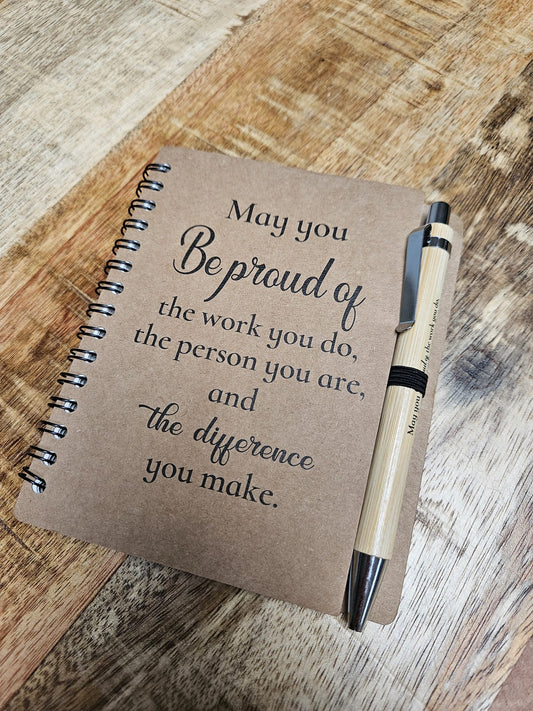 May you
Be proud of
the work you do,
the person you are,
and
the difference
you make.
May you
the work you do,